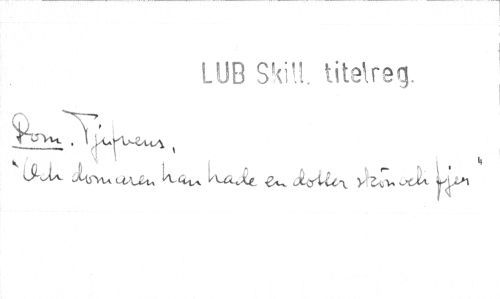 LUB Skill. titelreg.
Dom. Tjufvens,
"Och domaren han hade en dotter skön och fjer"